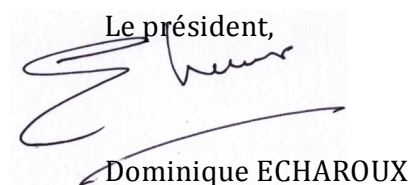 Le président,
Dominique ECHAROUX